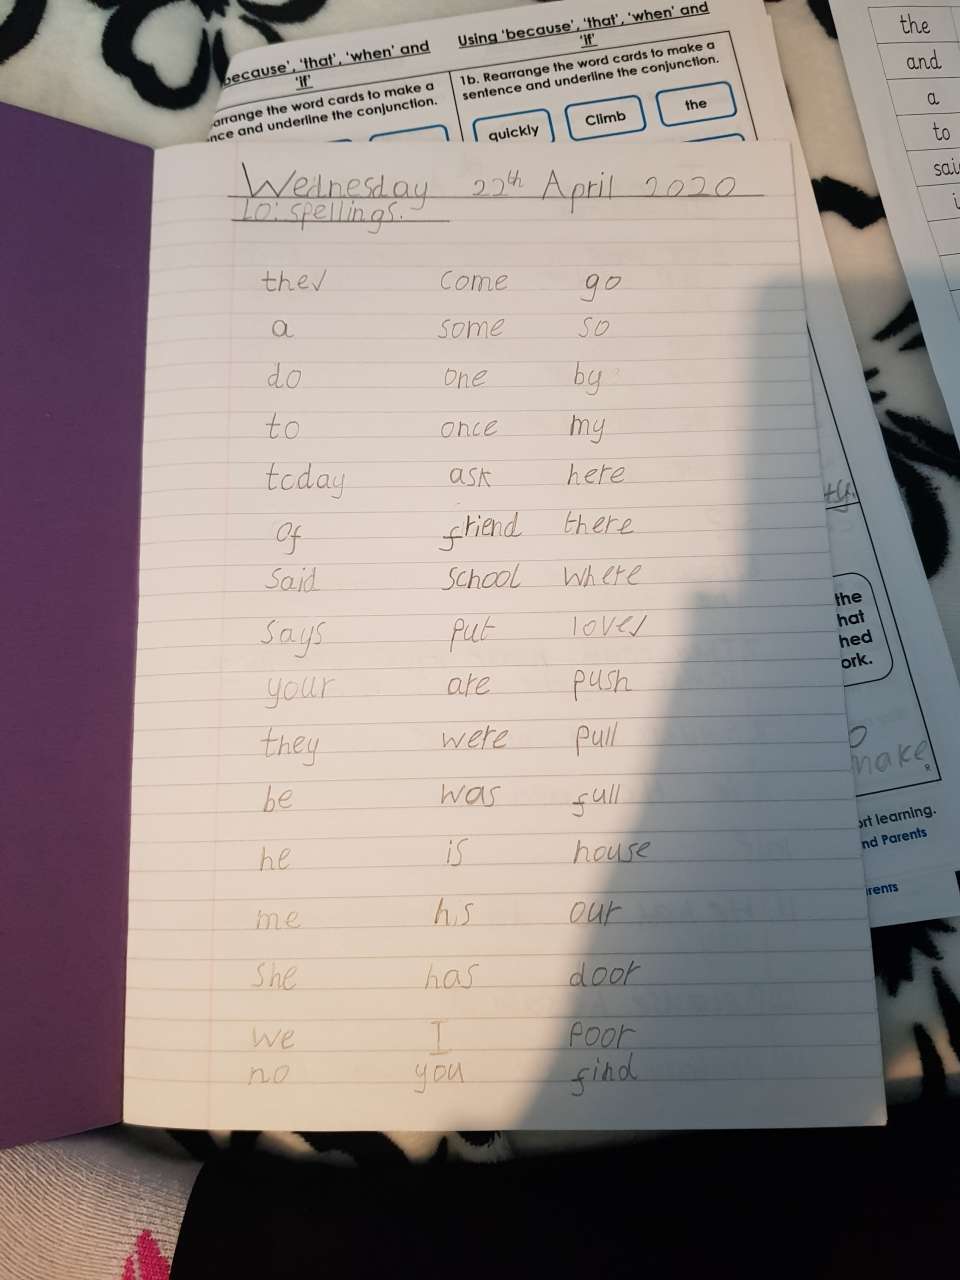 because', 'that', 'when' and
'if'
arrange the word cards to make a
nce and underline the conjunction.
Using 'because', 'that', 'when' and
'if'
1b. Rearrange the word cards to make a
sentence and underline the conjunction.
quickly Climb the
the
and
a
to
sai
i
Wednesday 22th April 2020
LO: spellings.
the✓ come go
a some so
do one by
to once my
today ask here
of friend there
said school where
says put love✓
your are push
they were pull
be was full
he is house
me his our
she has door
we I poor
no you find
ty.
the
hat
hed
ork.
make
R
ort learning.
nd Parents
rents